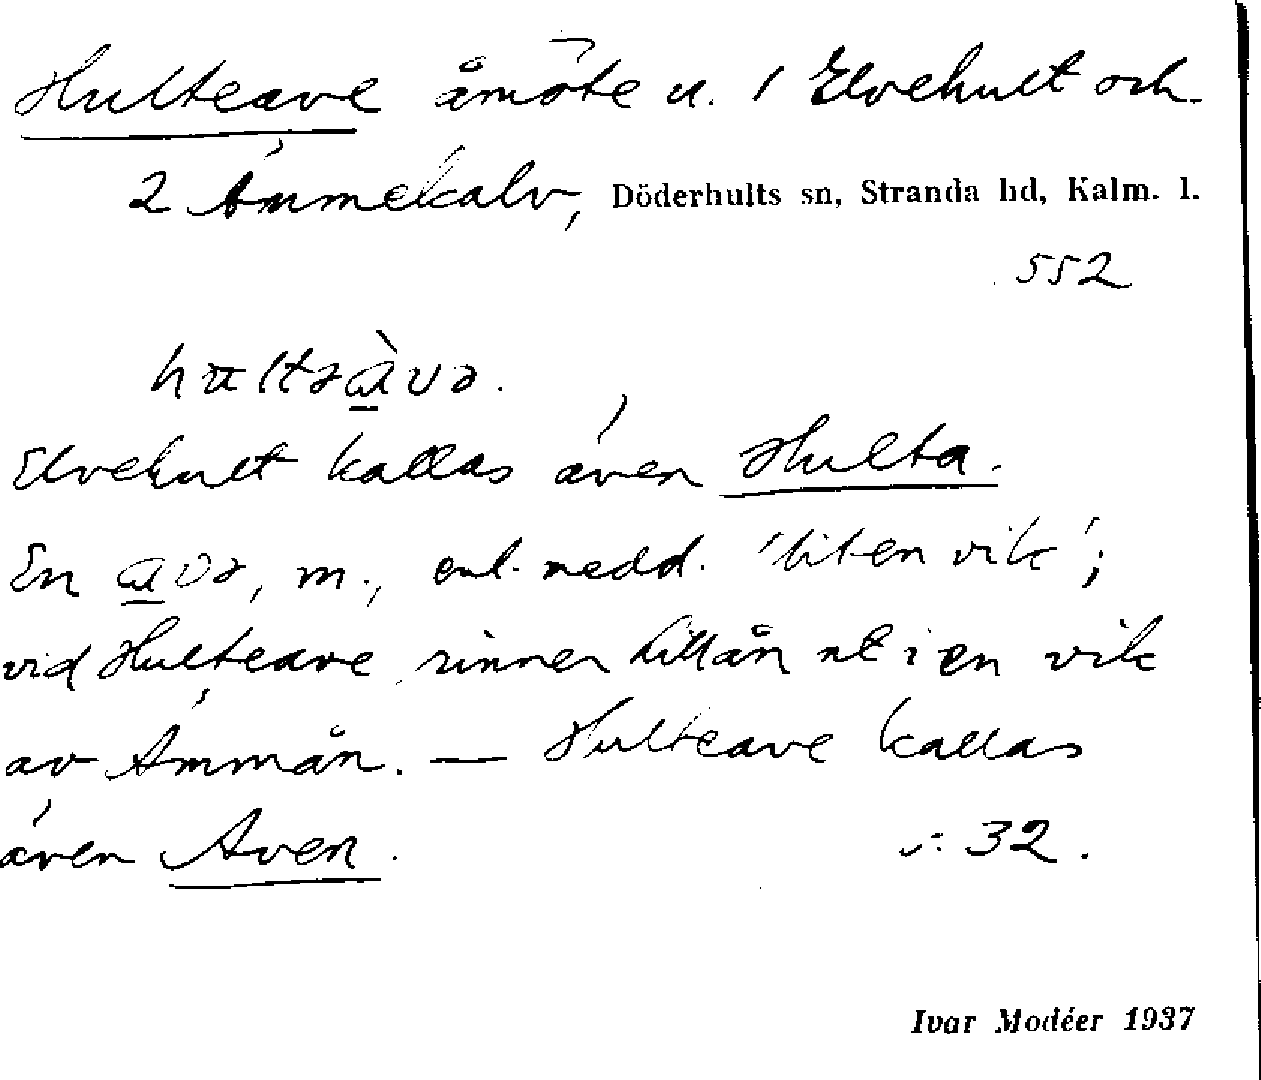 Hulteave åmöte u. 1 Elvehult och
2 Ämmekalv, Döderhults sn, Stranda hd, Kalm. l.
552
Elvehult kallas även Hulta.
En ava, m., enl. medd. 'liten vik';
vid Hulteave rinner Lillån ut i en vik
av Ämmån. — Hulteave kallas
även Aven. s: 32.
Ivar Modéer 1937